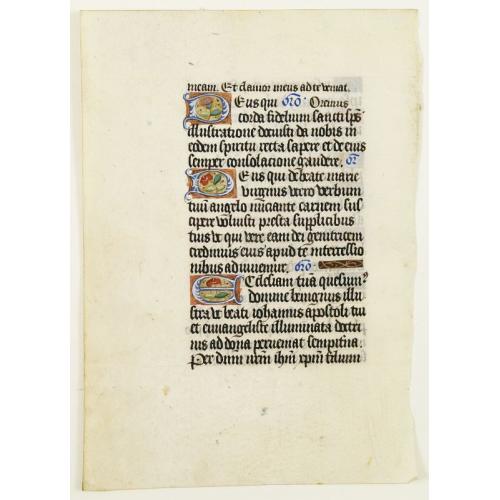 meam. Et clamor meus ad te veniat.
Deus qui orō: Oremus
corda fidelium sancti sp̄s
illustratione docuisti da nobis in
eodem spiritu recta sapere et de eius
semper consolacione gaudere. or̄
Deus qui de beate marie
virginis utero verbum
tuū angelo nūciante carnem sus
cipere voluisti presta supplicibus
tuis ut qui vere eam dei genitricem
credimus eius apud te intercessio
nibus adiuuemur. orō:
Ecclesiam tuā quesumꝰ
domine benignus illu
stra ut beati iohannis apostoli tui
et euuangeliste illuminata doctri
nis ad dona perueniat sempitna.
Per dnm nrm ihm xpm filium